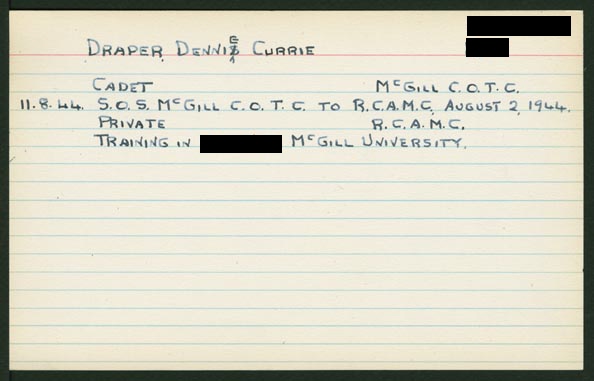 DRAPER, DENNIS CURRIE
CADET McGILL C.O.T.C.
11.8.44. S.O.S. McGILL C.O.T.C. TO R.C.A.M.C. AUGUST 2, 1944.
PRIVATE R.C.A.M.C.
TRAINING IN McGILL UNIVERSITY.